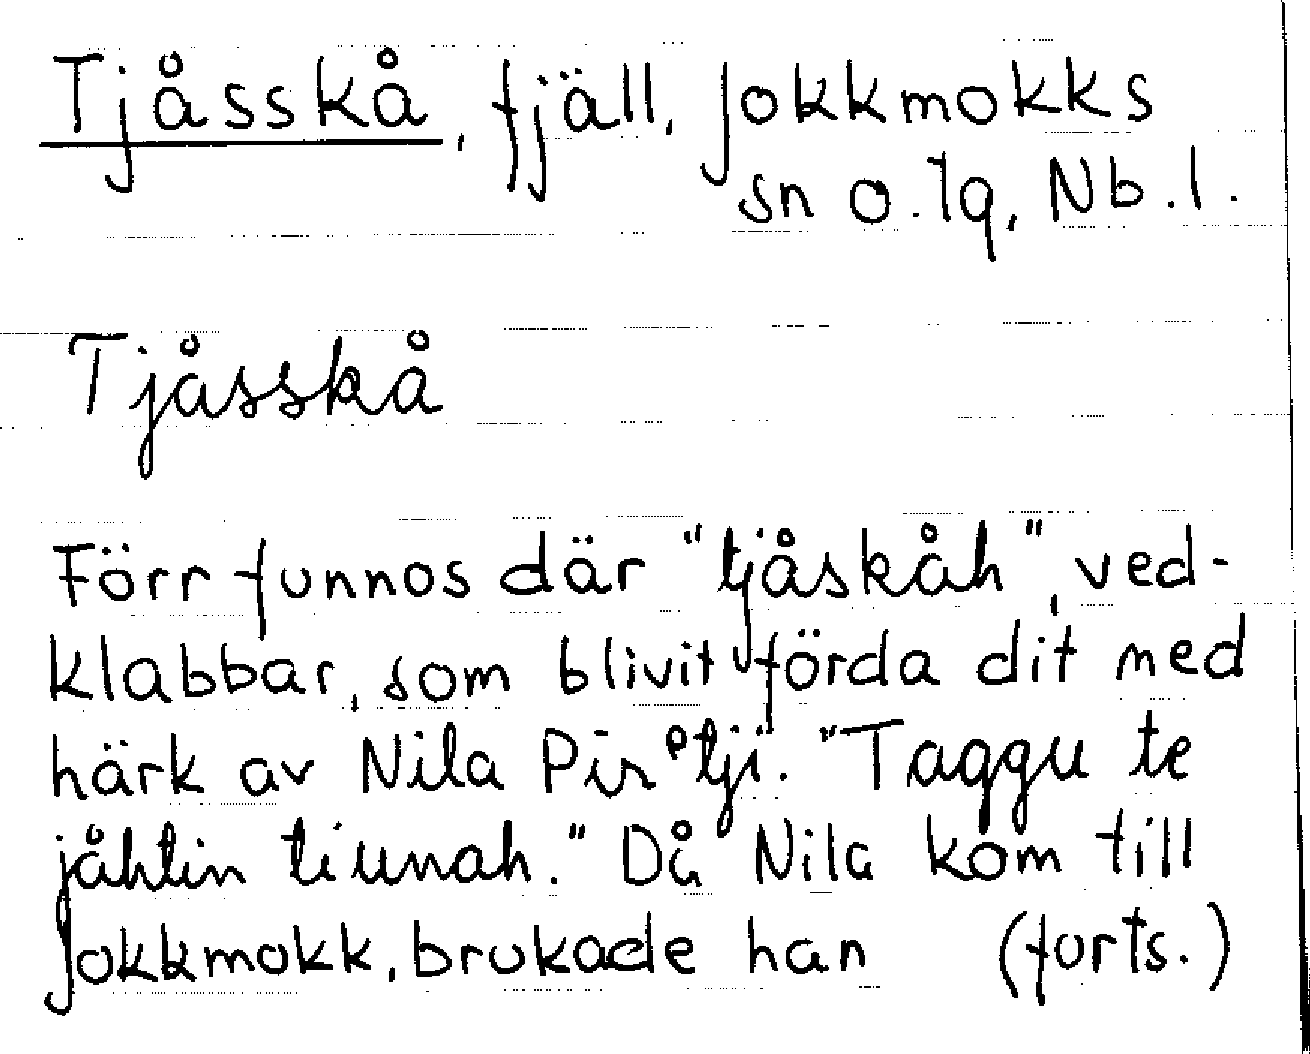 Tjåsskå, fjäll, Jokkmokks
sn o. lq, Nb. l.
Tjåsskå
Förr funnos där "tjåskåh", ved-
klabbar, som blivit förda dit med
härk av Nila Pirᵉtji. "Taggu te
jåhtin tiunah." Då Nila kom till
Jokkmokk, brukade han (forts.)